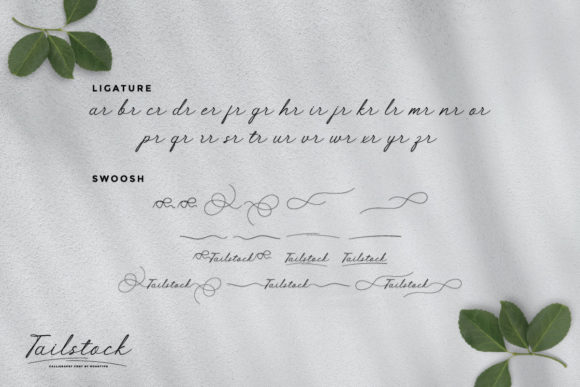 LIGATURE
ar br cr dr er fr gr hr ir jr kr lr mr nr or
pr qr rr sr tr ur vr wr xr yr zr
SWOOSH
Tailstock Tailstock Tailstock
Tailstock Tailstock Tailstock
Tailstock
CALLIGRAPHY FONT BY